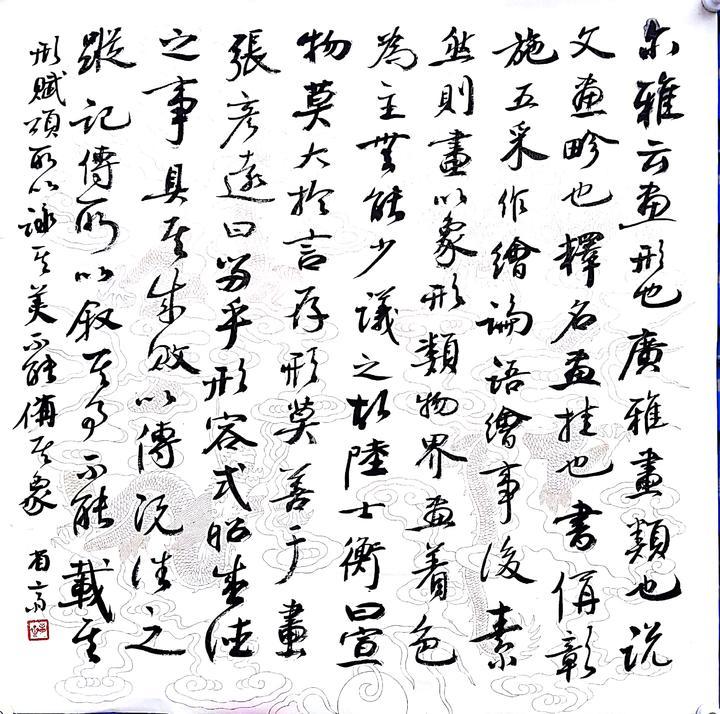 尔雅云畫形也廣雅畫類也说
文畫畛也釋名畫挂也書俻彰
施五采作繪論語繪事後素
然則畫以象形類物界畫着色
為主無能少議之故陸士衡曰宣
物莫大於言存形莫善于畫
張彦遠曰留乎形容式昭盛德
之事具其成敗以傳既往之
蹤記傳所以叙其事不能載其
形賦頌所以詠其美不能備其象